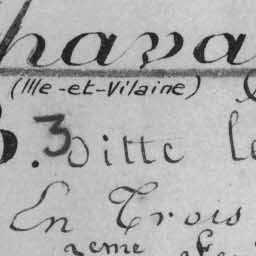 hava
(Ille-et-Vilaine)
3 Ditte le
En Trois
2eme